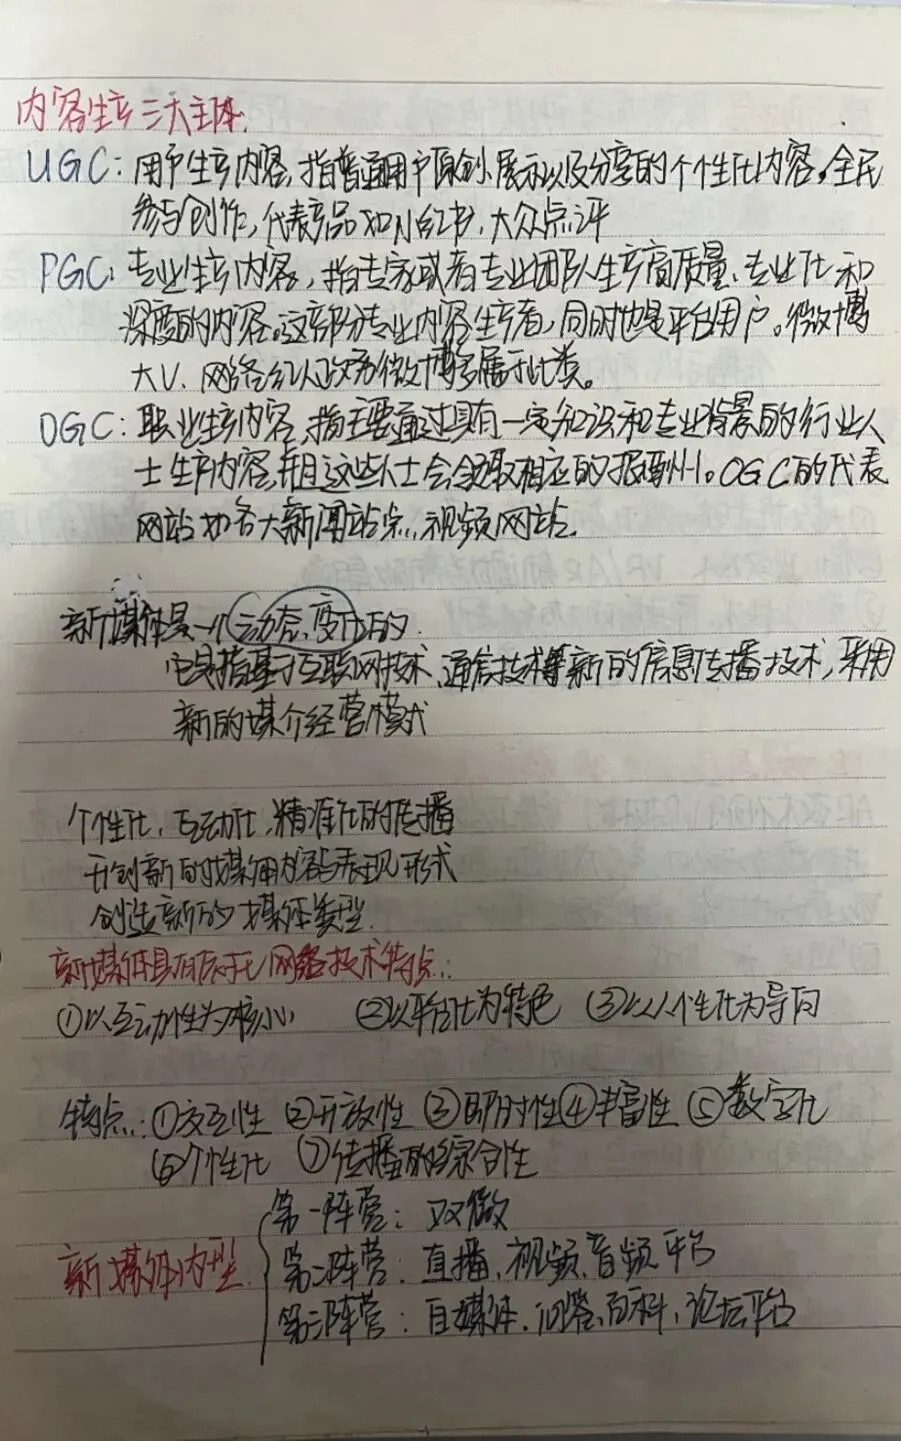 内容生产三大主体.
UGC: 用户生产内容, 指普通用户原创、展示以及分享的个个性化内容。全民
参与创作, 代表产品如小红书, 大众点评
PGC: 专业生产内容, 指专家或者专业团队生产高质量、专业化和
深度的内容。这部分专业内容生产者, 同时也是平台用户。微博
大V、网络红人政务微博多属于此类。
OGC: 职业生产内容, 指主要通过具有一定知识和专业背景的行业人
士生产内容, 并且这些人士会领取相应的报酬。OGC的代表
网站如各大新闻站点, 视频网站.
新媒体是一个动态、变化的
它是指基于互联网技术、通信技术等新的信息传播技术, 采用
新的媒介经营模式
个性化, 互动化, 精准化的传播
开创新的媒体内容与表现形式
创造新的媒体类型.
新媒体具有 网络技术特点:
①以互动性为核心 ②以平台化为特色 ③以人个性化为导向
特点: ①交互性 ②开放性 ③即时性 ④丰富性 ⑤数字化
⑥个性化 ⑦传播的综合性
第一阵营: 双微
新媒体 型 第二阵营: 直播、视频、音频平台
第三阵营: 自媒体、问答、百科、论坛平台